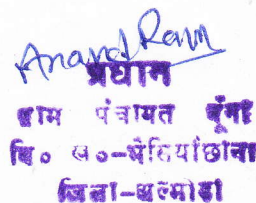 Anand Ram
प्रधान
ग्राम पंचायत डूंगरी
वि० ख०-भैसियाछाना
जिला-अल्मोडा